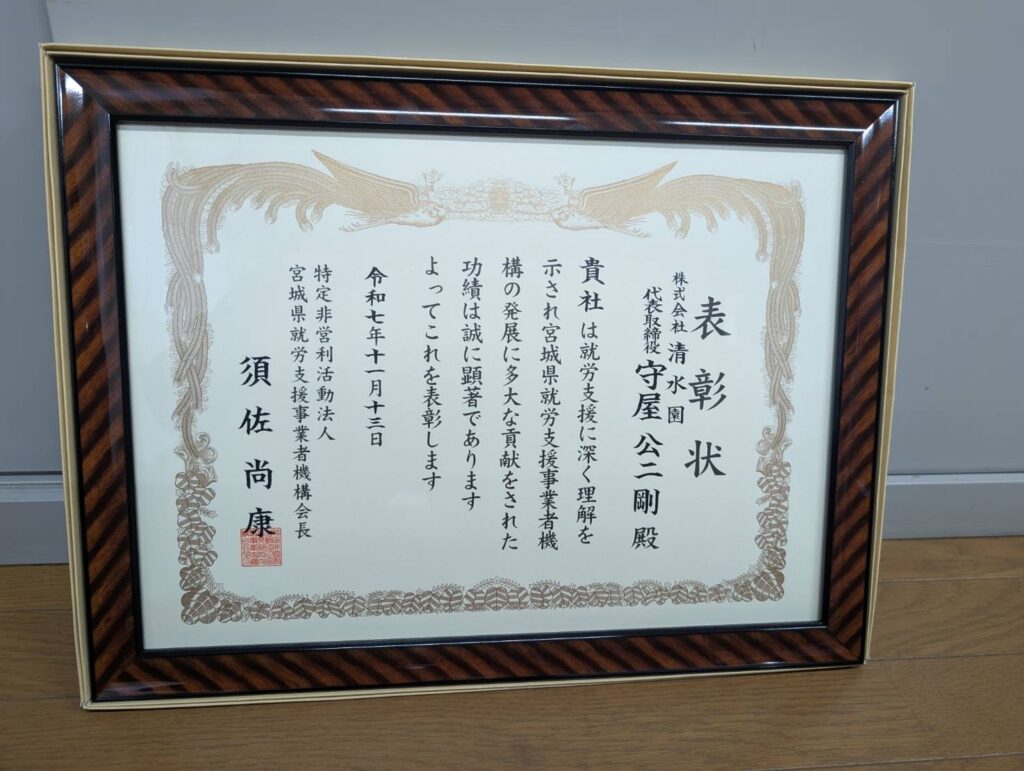 表彰状
株式会社 清水園
代表取締役 守屋 公二剛 殿
貴社は就労支援に深く理解を
示され宮城県就労支援事業者機
構の発展に多大な貢献をされた
功績は誠に顕著であります
よってこれを表彰します
令和七年十一月十三日
特定非営利活動法人
宮城県就労支援事業者機構会長
須佐尚康